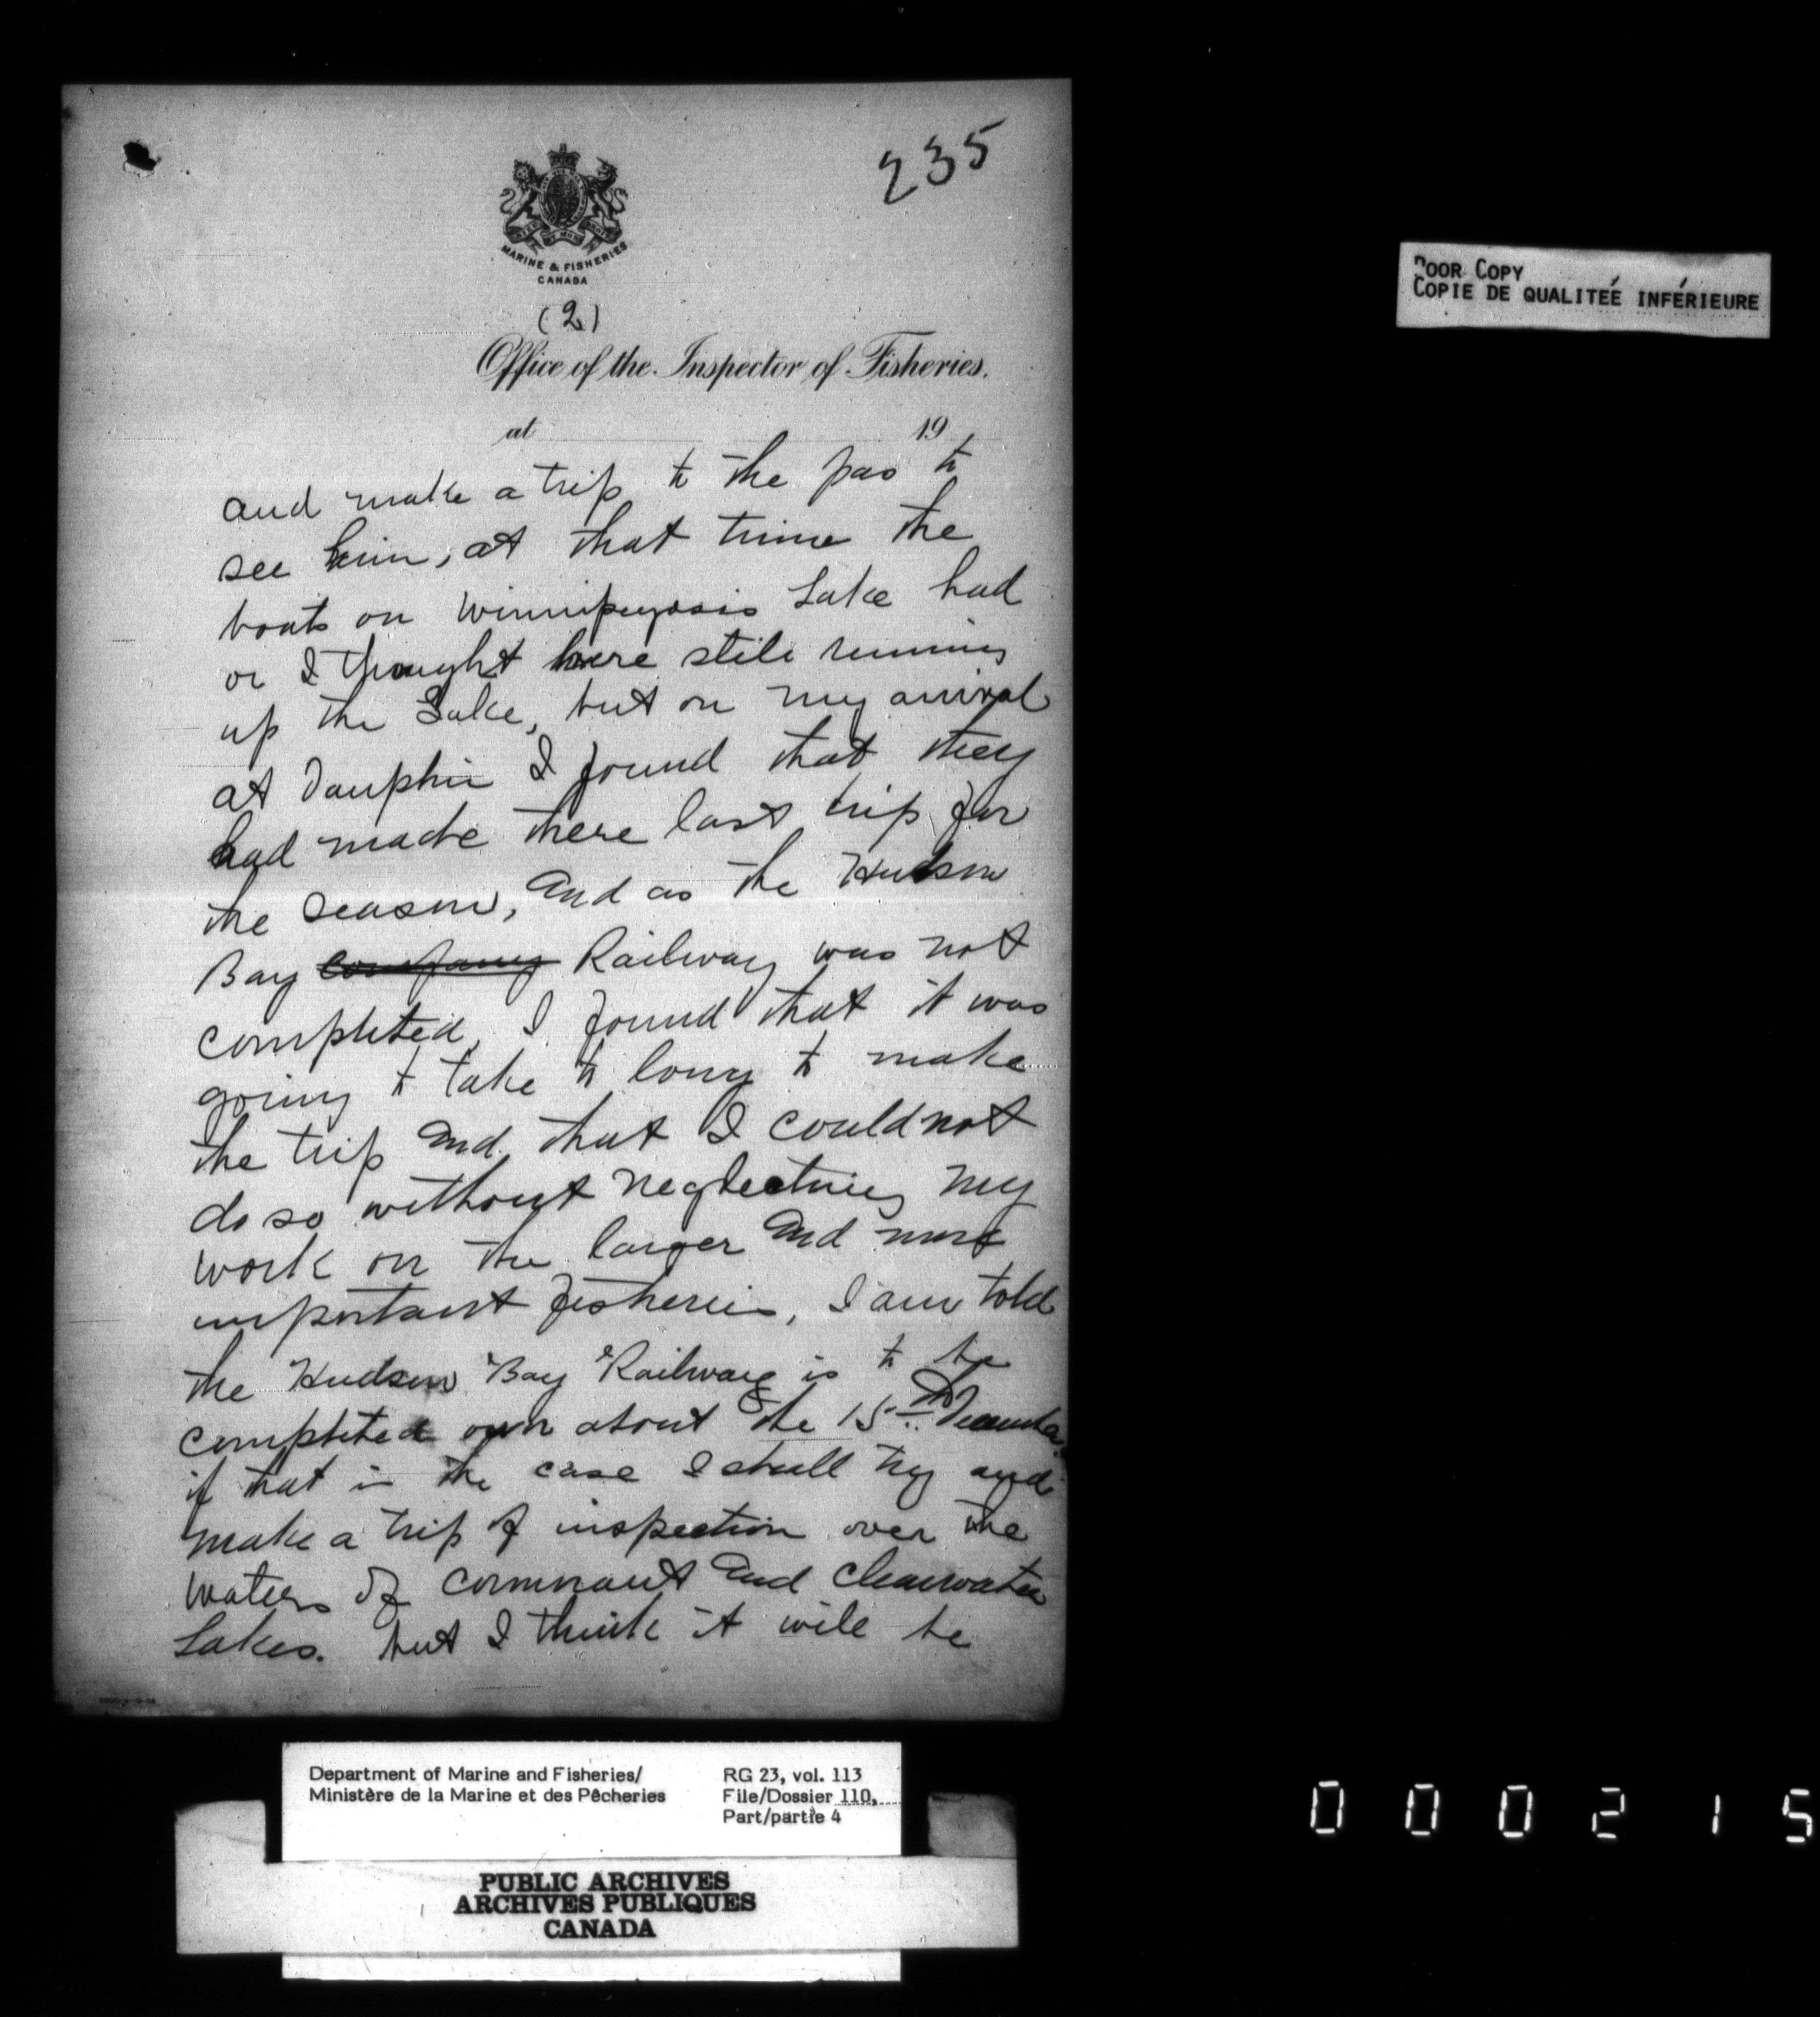 235
MARINE & FISHERIES
CANADA
(2)
Office of the Inspector of Fisheries.
at 19
and make a trip to the pas to
see him, at that time the
boats on Winnipegosis Lake had
or I thought were still running
up the Lake, but on my arrival
at Dauphin I found that they
had made there last trip for
the season, and as the Hudson
Bay company Railway was not
completed, I found that it was
going to take to long to make
the trip and that I could not
do so without neglecting my
work on the larger and more
important fisheries, I am told
the Hudson Bay Railway is to be
completed on about the 15th December
if that is the case I shall try and
make a trip of inspection over the
waters of cormorant and clearwater
Lakes. but I think it will be
POOR COPY
COPIE DE QUALITEÉ INFÉRIEURE
Department of Marine and Fisheries/
Ministère de la Marine et des Pêcheries
RG 23, vol. 113
File/Dossier 110,
Part/partie 4
PUBLIC ARCHIVES
ARCHIVES PUBLIQUES
CANADA
000215